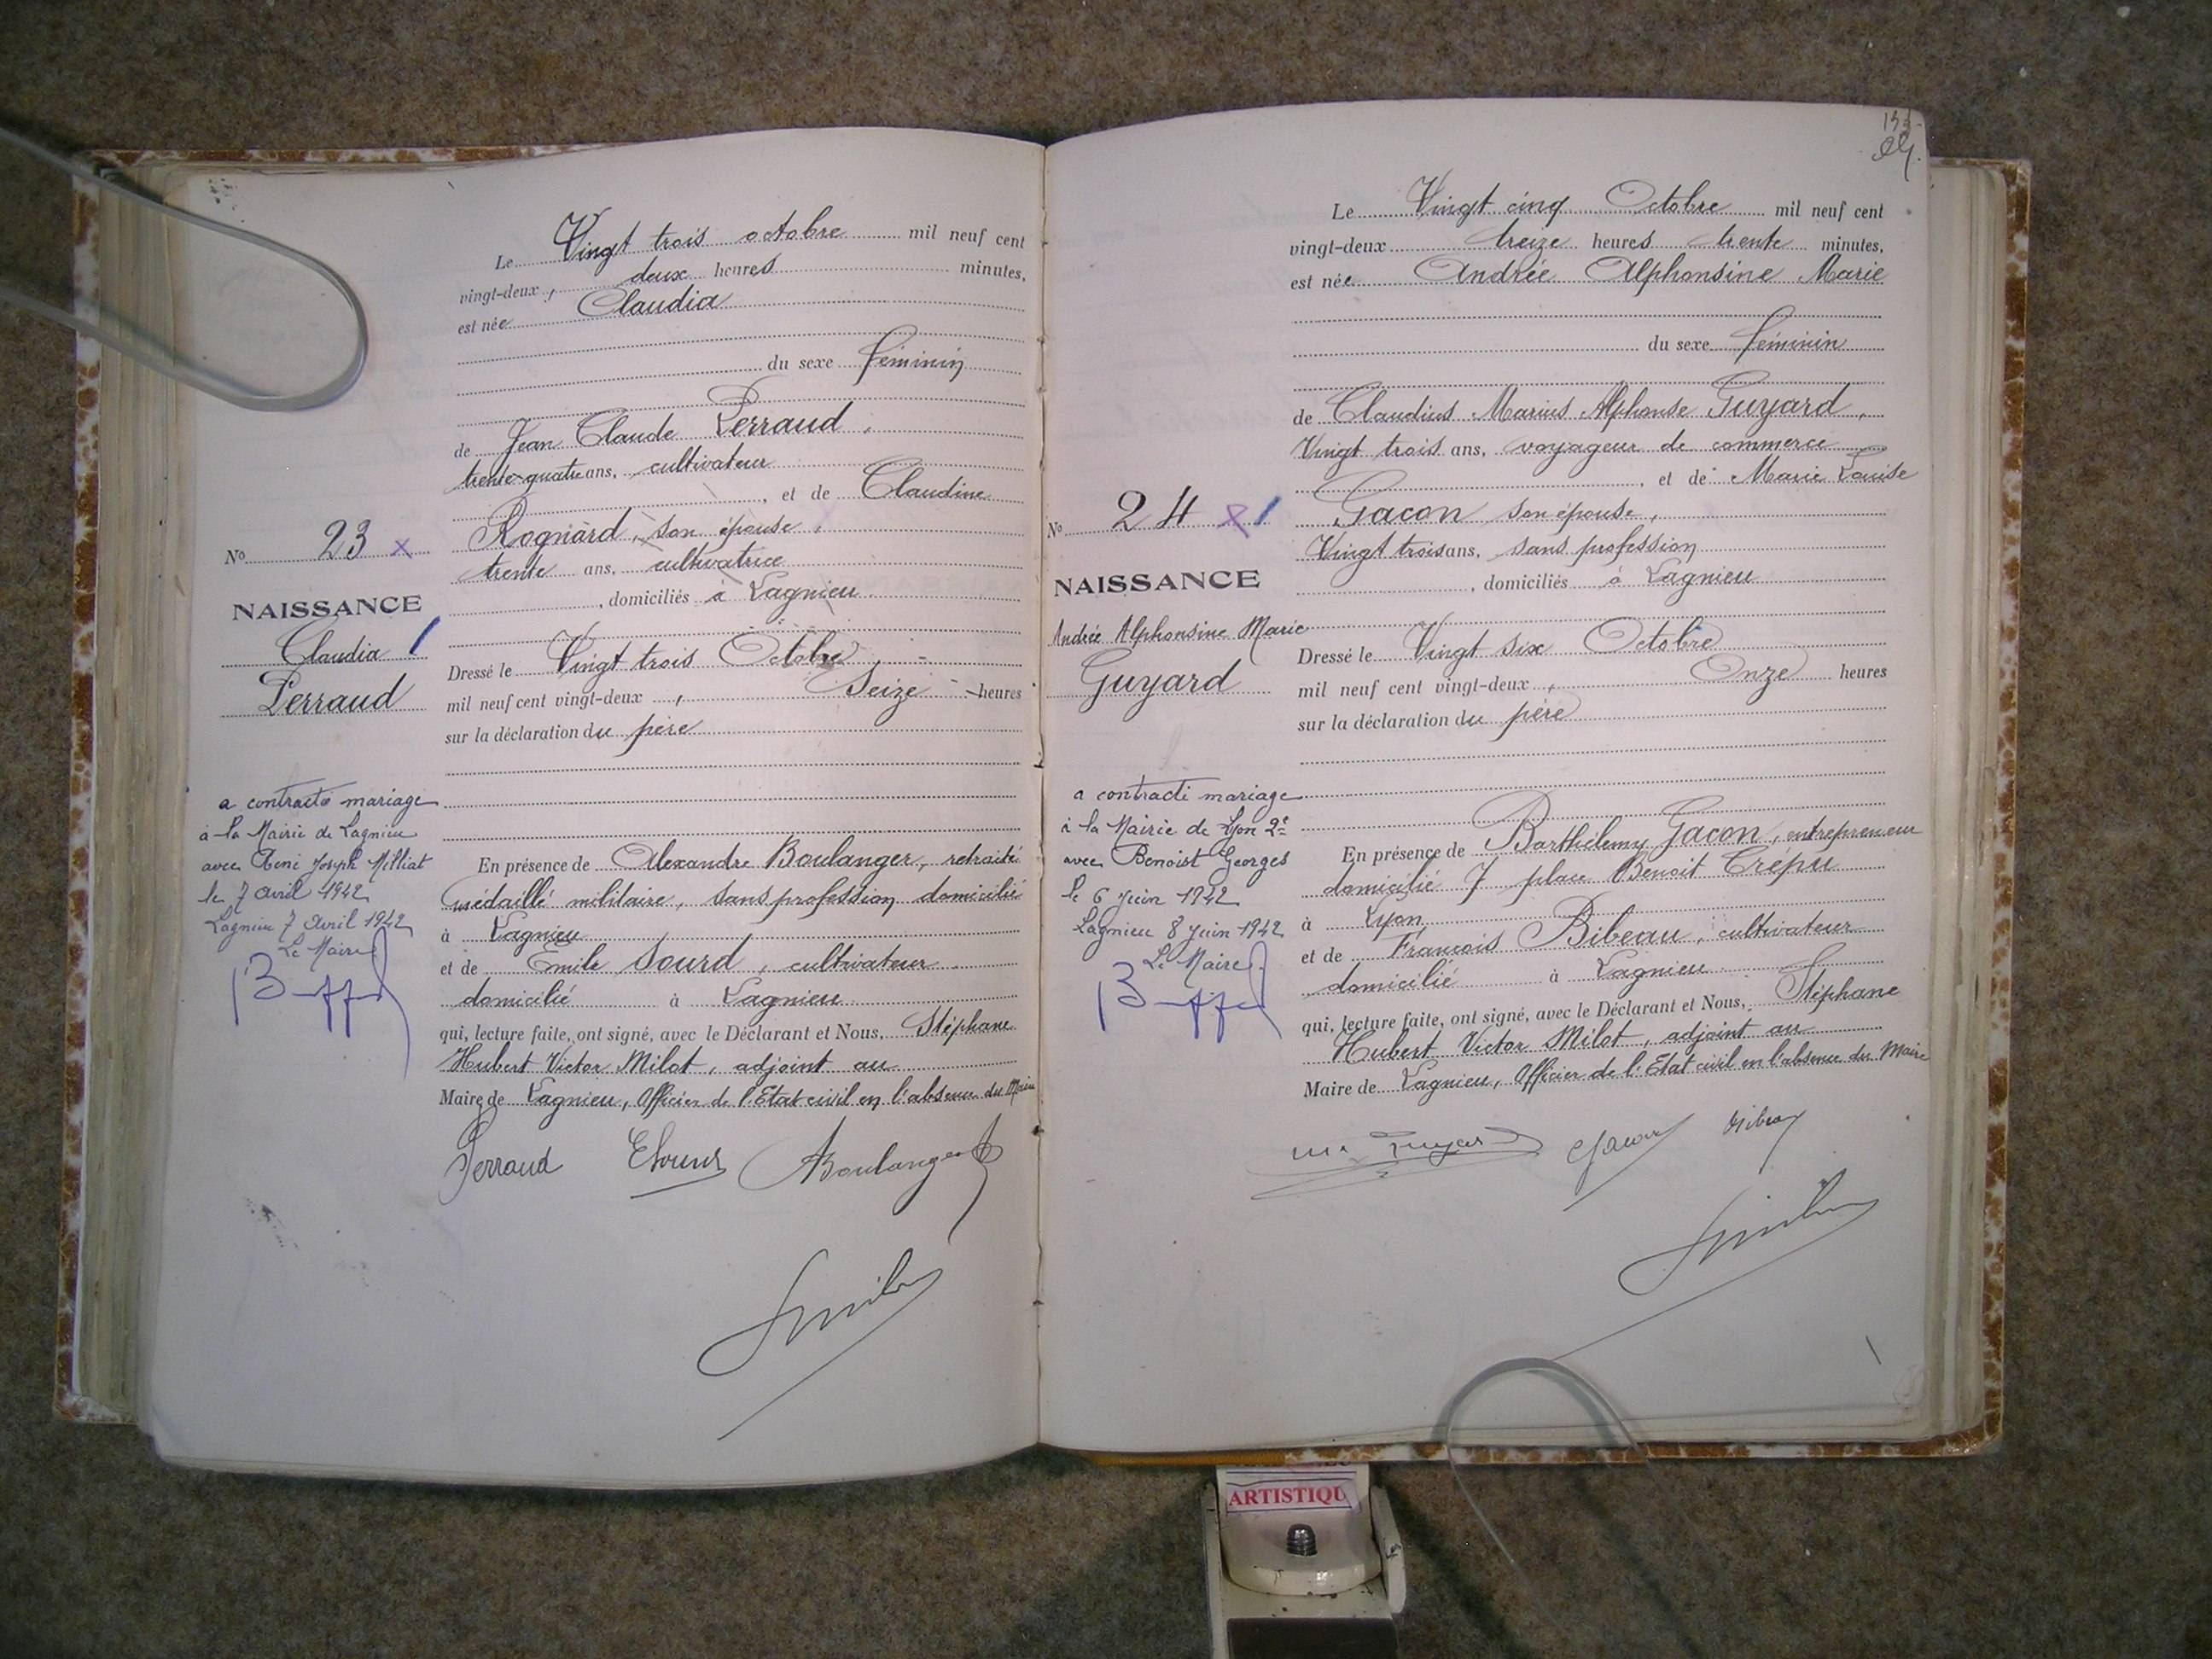 Le Vingt trois octobre mil neuf cent
vingt-deux, deux heures minutes,
est née Claudia
du sexe féminin
de Jean Claude Perraud,
trente-quatre ans, cultivateur
, et de Claudine
Rognard, son épouse,
trente ans, cultivatrice
, domiciliés à Lagnieu
Dressé le Vingt trois Octobre
mil neuf cent vingt-deux, Seize heures
sur la déclaration du père
En présence de Alexandre Boulanger, retraité
médaillé militaire, sans profession domicilié
à Lagnieu
et de Emile Sourd, cultivateur
domicilié à Lagnieu
qui, lecture faite, ont signé, avec le Déclarant et Nous, Stéphane
Hubert Victor Milot, adjoint au
Maire de Lagnieu, Officier de l'Etat civil en l'absence du Maire
Perraud ESourd ABoulanger
No 23 x
NAISSANCE
Claudia
Perraud
a contracté mariage
à la Mairie de Lagnieu
avec René Joseph Milliat
le 7 avril 1942
Lagnieu 7 Avril 1942
Le Maire
Le Vingt cinq Octobre mil neuf cent
vingt-deux treize heures trente minutes,
est née Andrée Alphonsine Marie
du sexe féminin
de Claudius Marius Alphonse Guyard,
Vingt trois ans, voyageur de commerce
, et de Marie Louise
Gacon son épouse,
Vingt trois ans, sans profession
, domiciliés à Lagnieu
Dressé le Vingt six Octobre
mil neuf cent vingt-deux, Onze heures
sur la déclaration du père
En présence de Barthélemy Gacon, entrepreneur
domicilié 7 place Benoit Crépu
à Lyon
et de François Bibeau, cultivateur
domicilié à Lagnieu
qui, lecture faite, ont signé, avec le Déclarant et Nous, Stéphane
Hubert Victor Milot, adjoint au
Maire de Lagnieu, Officier de l'Etat civil en l'absence du Maire
No 24 x
NAISSANCE
Andrée Alphonsine Marie
Guyard
a contracté mariage
à la Mairie de Lyon 2e
avec Benoist Georges
le 6 juin 1942
Lagnieu 8 juin 1942
Le Maire
ARTISTIQU